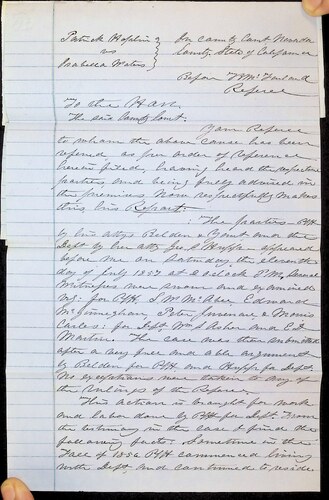 Patrick
vs
Isabella Waters
In County Court Nevada
County, State of California
Before
Referee
To the Hon.
The said County Court.
Your Referee
to whom the above cause has been
referred as per order of Reference
herein filed, having heard the respective
parties, and being fully advised in
the premises. Now respectfully makes
this his Report.
The parties Plff
by his attys Belden & and the
Deft by her atty appeared
before me on Saturday the eleventh
day of July 1857 at o'clock P.M. Several
Witnesses were sworn and examined
viz: for Plff. Edmund
Peter & Morris
for Deft. Wm
Martin. The case was then submitted
after a very full and able argument
by Belden for Plff. and for Deft.
No exceptions were taken to any of
the rulings of the Referee.
This action is brought for work
and labor done by Plff for Deft. From
the testimony in the case I find the
following facts. Sometime in the
Fall of 1856 Plff commenced living
with Deft. and continued to reside